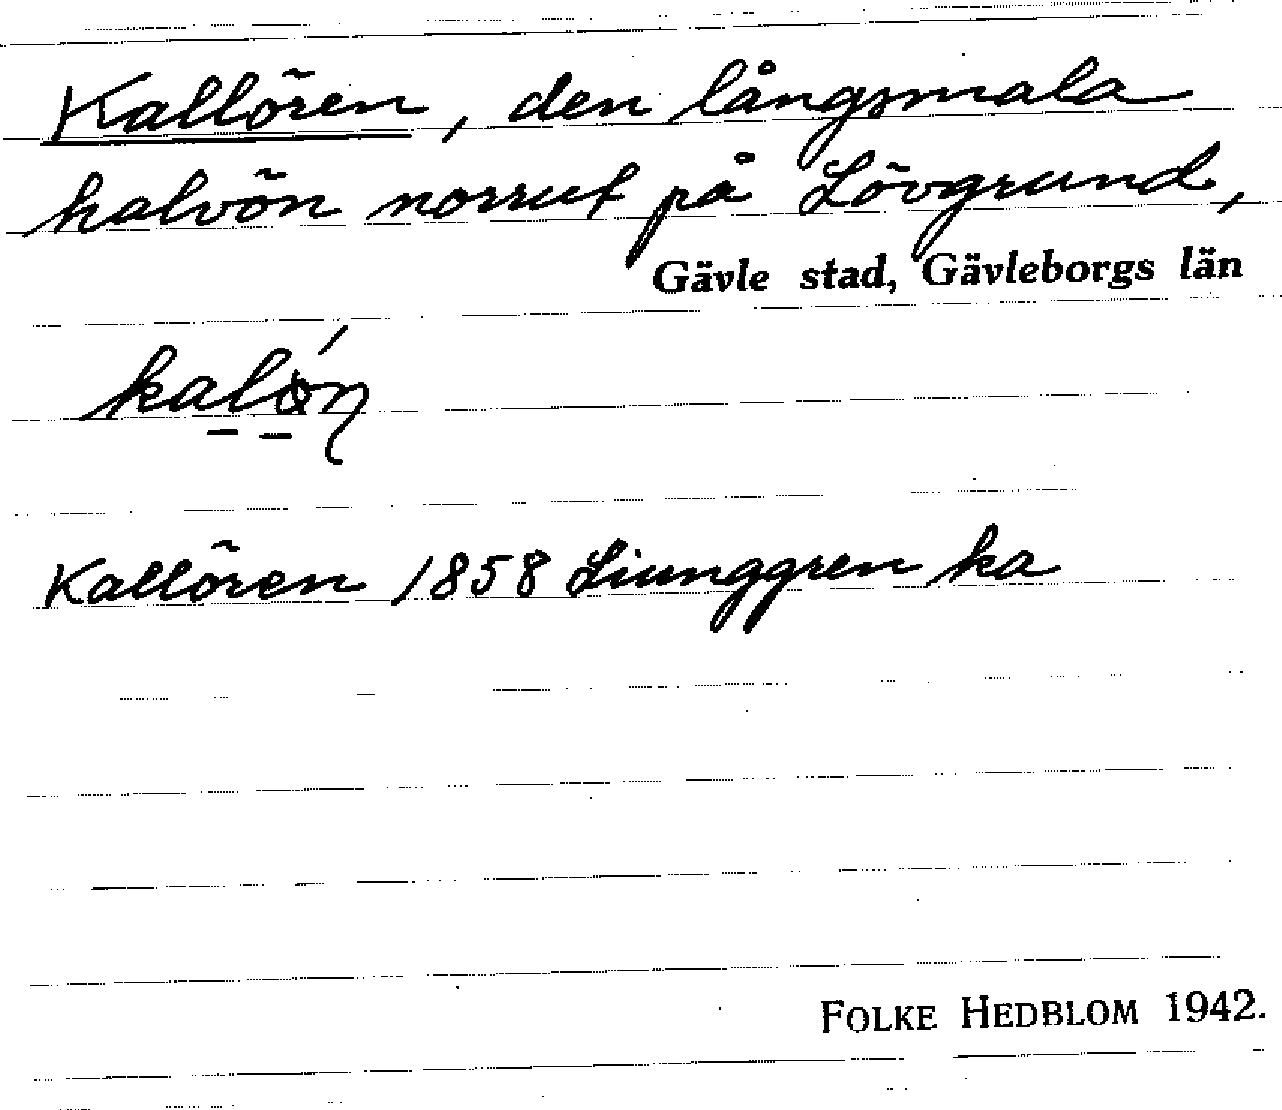 Kallören, den långsmala
halvön norrut på Lövgrund,
Gävle stad, Gävleborgs län
Kallören 1858 Liunggren ka
FOLKE HEDBLOM 1942.